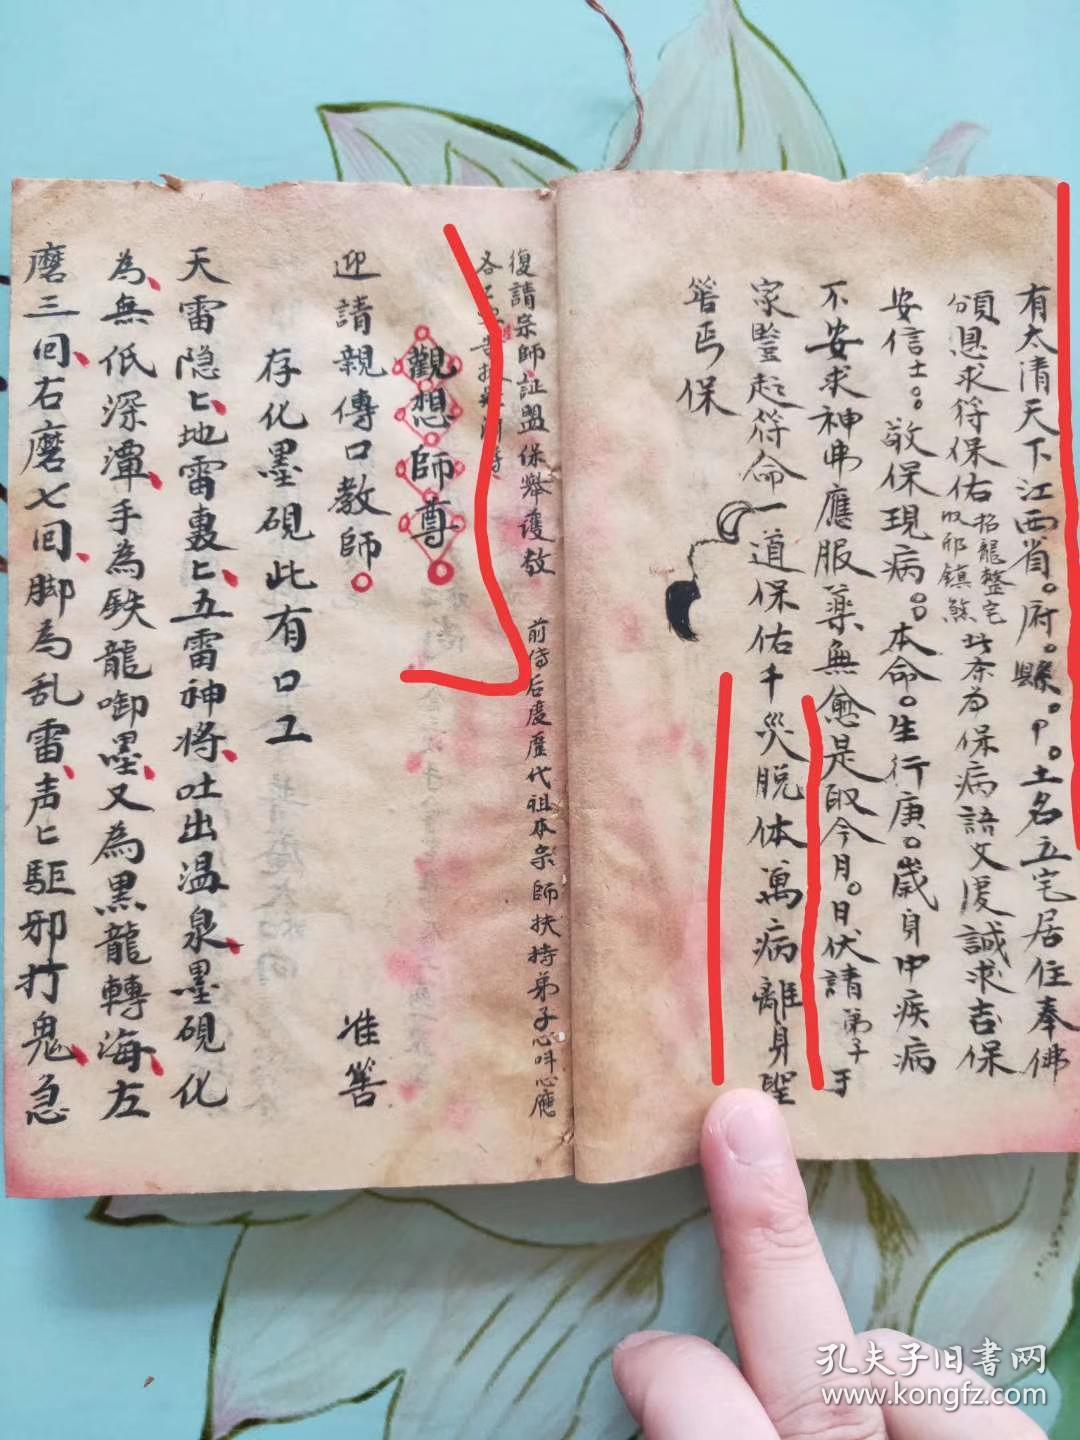 有太清天下江西省。府。縣。P。土名立宅居住奉佛
頒恩求符保佑招龍整宅收邪鎮煞此奈為保病語文虔誠求吉保
安信士。敬保現病。本命。生行庚。歲身中疾病
不安求神弗應服藥無愈是取今月。日伏請弟子于
家豎起符命一道保佑千災脱体萬病離身聖
筶丐保
復請宗師証盟保舉護教 前傳后度歷代祖本宗師扶持弟子心叫心應
觀想師尊
迎請親傳口教師。 准筶
存化墨硯此有口工
天雷隐匕地雷轟匕五雷神將吐出温泉墨硯化
為無低深潭手為鉄龍啣墨又為黑龍轉海左
磨三回右磨七回脚為乱雷声匕驅邪打鬼急
孔夫子旧書网
www.kongfz.com